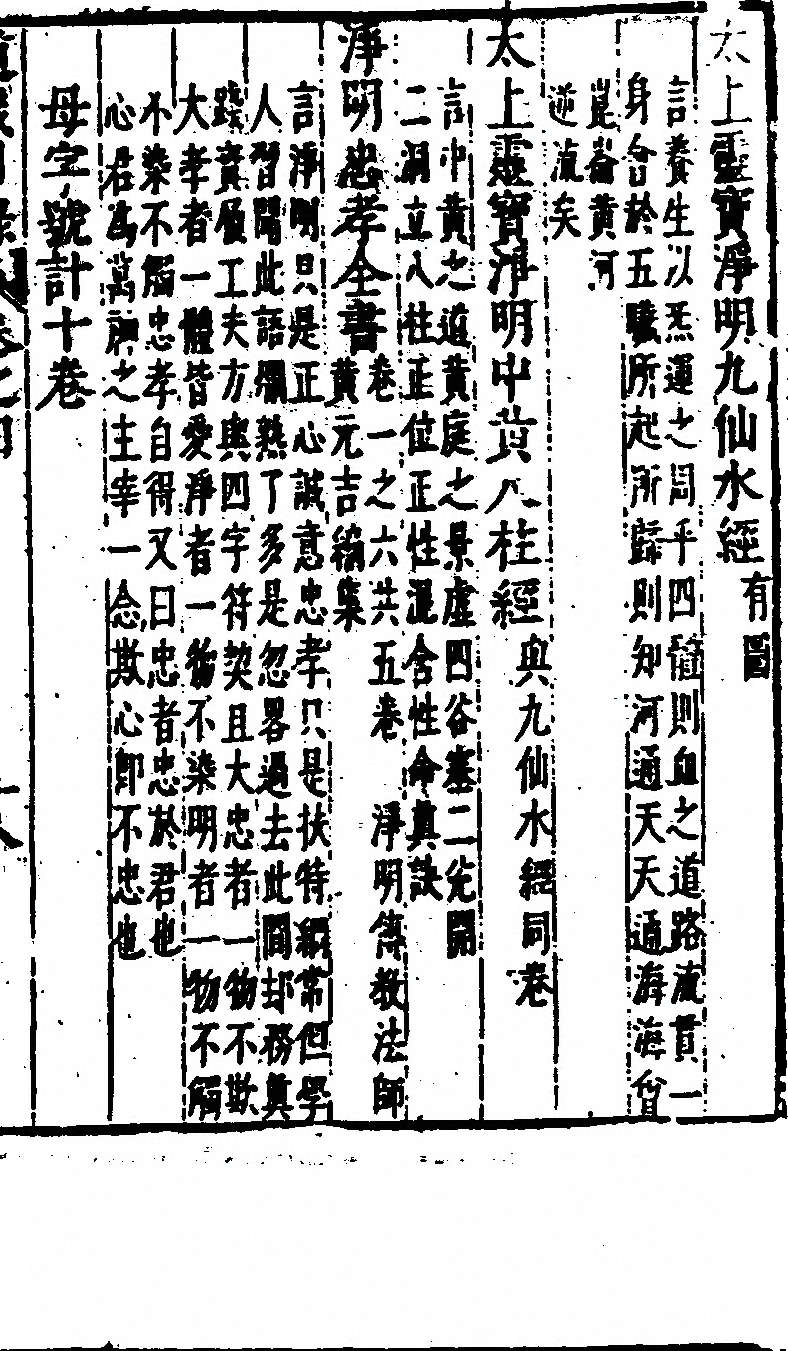 太上靈寶淨明九仙水經有圖
言養生以炁運之周乎四體則血之道路流貫一
身合於五臟所起所歸則知河通天天通海海會
崑崙黃河
逆流矣
太上靈寶淨明中黃八柱經與九仙水經同卷
言中黃之道黃庭之景虛四谷塞二兊開
二洞立八柱正位正性混合性命真訣
淨明忠孝全書卷一之六共五卷 淨明傳教法師
黃元吉編集
言淨明只是正心誠意忠孝只是扶持綱常但學
人習聞此語爛熟了多是忽畧過去此間却務真
踐實履工夫方與四字符契且大忠者一物不欺
大孝者一體皆愛淨者一物不染明者一物不觸
不染不觸忠孝自得又曰忠者忠於君也
心君為萬神之主宰一念欺心即不忠也
母字號計十卷